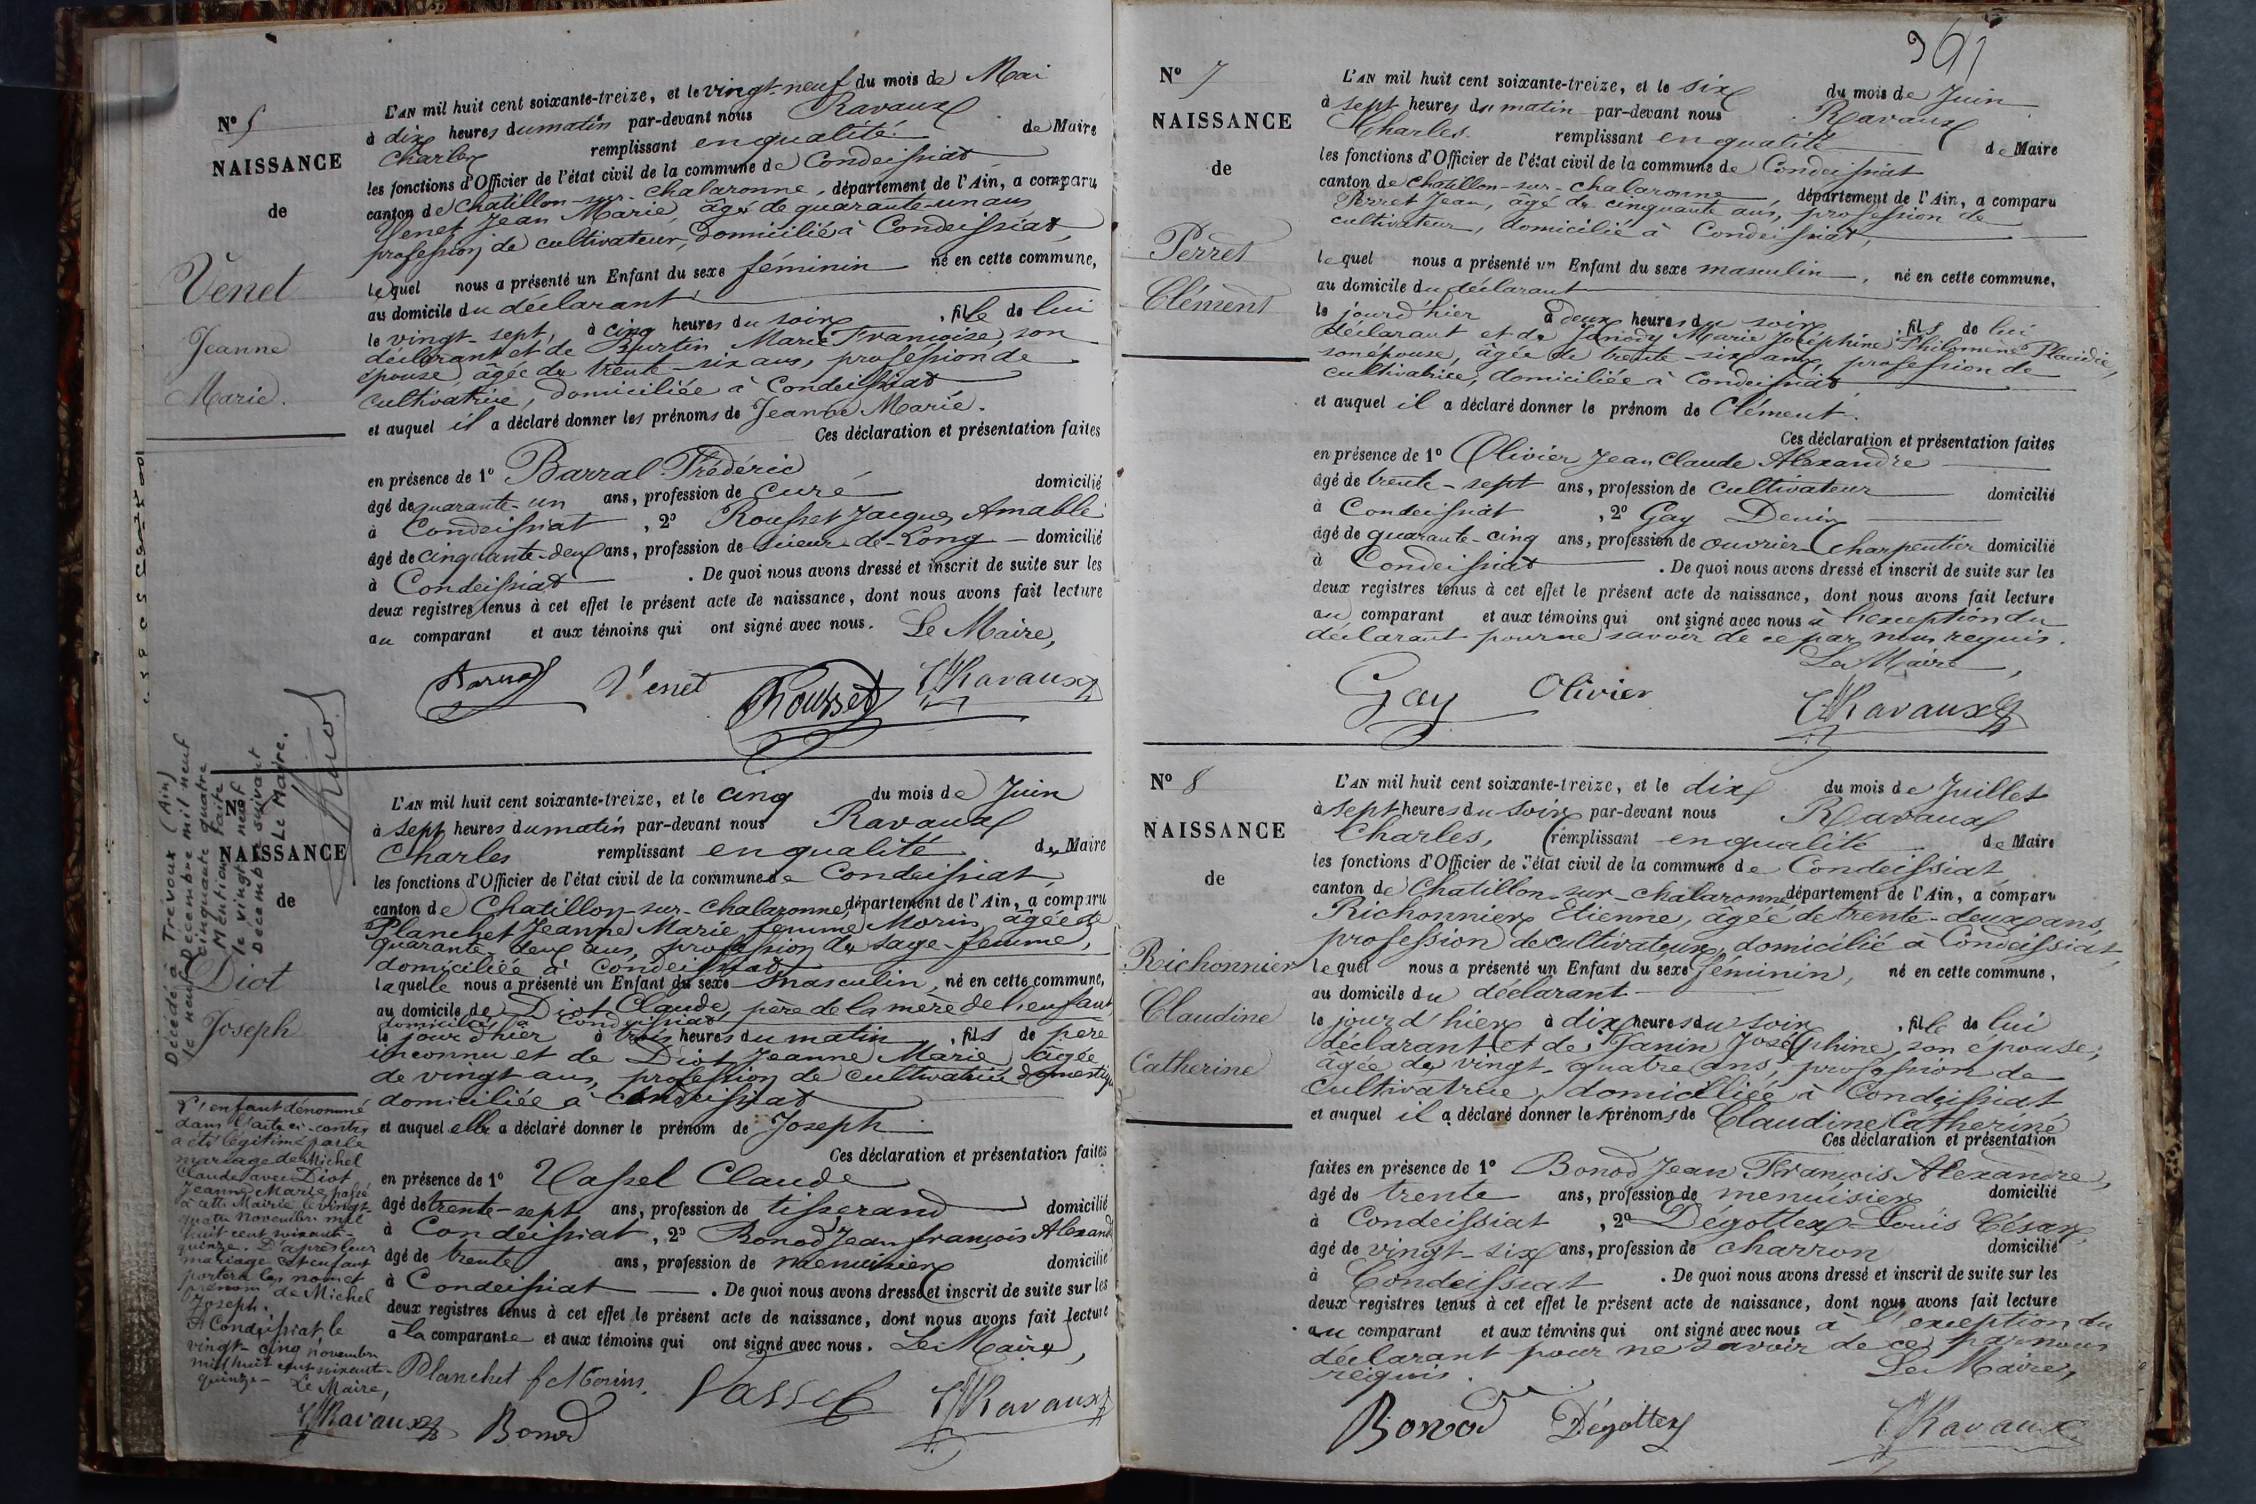 N° 5
NAISSANCE
de
Venet
Jeanne
Marie.
L'AN mil huit cent soixante-treize, et le vingt-neuf du mois de Mai
à dix heures du matin par-devant nous Ravaux
Charles remplissant en qualité de Maire
les fonctions d'Officier de l'état civil de la commune de Condeissiat
canton de Chatillon-sur-Chalaronne, département de l'Ain, a comparu
Venet Jean Marie, âgé de quarante-un ans
profession de cultivateur, domicilié à Condeissiat,
lequel nous a présenté un Enfant du sexe féminin né en cette commune,
au domicile du déclarant
le vingt-sept, à cinq heures du soir, fille de lui
déclarant et de Burtin Marie Françoise, son
épouse, âgée de trente-six ans, profession de
cultivatrice, domiciliée à Condeissiat
et auquel il a déclaré donner les prénoms de Jeanne Marie.
Ces déclaration et présentation faites
en présence de 1° Barral Frédéric
âgé de quarante-un ans, profession de curé domicilié
à Condeissiat, 2° Rousset Jacques Amable
âgé de cinquante-deux ans, profession de scieur-de-Long domicilié
à Condeissiat. De quoi nous avons dressé et inscrit de suite sur les
deux registres tenus à cet effet le présent acte de naissance, dont nous avons fait lecture
au comparant et aux témoins qui ont signé avec nous. Le Maire,
Barral Venet Rousset Ravaux
Décédé à Trévoux (Ain)
le neuf Décembre mil neuf
cinquante quatre
Mention faite
le vingt neuf
Décembre suivant
Le Maire.
N°
NAISSANCE
de
Diot
Joseph
L'enfant dénommé
dans l'acte ci-contre
a été légitimé par le
mariage de Michel
Claude avec Diot
Jeanne Marie passé
à cette Mairie le vingt-
quatre novembre mil
huit cent soixante-
quinze. D'après leur
mariage cet enfant
portera les nom et
prénom de Michel
Joseph.
A Condeissiat, le
vingt-cinq novembre
mil huit cent soixante-
quinze-
Le Maire,
Ravaux
L'AN mil huit cent soixante-treize, et le cinq du mois de Juin
à sept heures du matin par-devant nous Ravaux
Charles remplissant en qualité de Maire
les fonctions d'Officier de l'état civil de la commune de Condeissiat,
canton de Chatillon-sur-Chalaronne, département de l'Ain, a comparu
Planchet Jeanne Marie femme Morin, âgée de
quarante deux ans, profession de sage-femme,
domiciliée à Condeissiat
laquelle nous a présenté un Enfant du sexe masculin, né en cette commune,
au domicile de Diot Claude, père de la mère de l'enfant
domicilié à Condeissiat
le jour d'hier à trois heures du matin, fils de père
inconnu et de Diot Jeanne Marie, âgée
de vingt ans, profession de cultivatrice domestique
domiciliée à Condeissiat
et auquel elle a déclaré donner le prénom de Joseph
Ces déclaration et présentation faites
en présence de 1° Vassel Claude
âgé de trente-sept ans, profession de tisserand domicilié
à Condeissiat, 2° Bonod Jean françois Alexandre
âgé de trente ans, profession de menuisier domicilié
à Condeissiat. De quoi nous avons dressé et inscrit de suite sur les
deux registres tenus à cet effet le présent acte de naissance, dont nous avons fait lecture
à la comparante et aux témoins qui ont signé avec nous. Le Maire,
Planchet f Morin Vassel Ravaux
Bonod
N° 7
NAISSANCE
de
Perret
Clément
L'AN mil huit cent soixante-treize, et le six du mois de Juin
à sept heures du matin par-devant nous Ravaux
Charles. remplissant en qualité de Maire
les fonctions d'Officier de l'état civil de la commune de Condeissiat
canton de Chatillon-sur-Chalaronne, département de l'Ain, a comparu
Perret Jean, âgé de cinquante ans, profession de
cultivateur, domicilié à Condeissiat,
lequel nous a présenté un Enfant du sexe masculin, né en cette commune,
au domicile du déclarant
le jour d'hier à deux heures du soir, fils de lui
déclarant et de Janody Marie Joséphine Philomène Placidie,
son épouse, âgée de trente-six ans, profession de
cultivatrice, domiciliée à Condeissiat
et auquel il a déclaré donner le prénom de Clément.
Ces déclaration et présentation faites
en présence de 1° Olivier Jean Claude Alexandre
âgé de trente-sept ans, profession de cultivateur domicilié
à Condeissiat, 2° Gay Denis
âgé de quarante-cinq ans, profession de ouvrier Charpentier domicilié
à Condeissiat. De quoi nous avons dressé et inscrit de suite sur les
deux registres tenus à cet effet le présent acte de naissance, dont nous avons fait lecture
au comparant et aux témoins qui ont signé avec nous à l'exception du
déclarant pour ne savoir de ce par nous requis.
Le Maire,
Gay Olivier Ravaux
N° 8
NAISSANCE
de
Richonnier
Claudine
Catherine
L'AN mil huit cent soixante-treize, et le dix du mois de Juillet
à sept heures du soir par-devant nous Ravaux
Charles, remplissant en qualité de Maire
les fonctions d'Officier de l'état civil de la commune de Condeissiat
canton de Chatillon-sur-Chalaronne département de l'Ain, a comparu
Richonnier Etienne, âgée de trente-deux ans,
profession de cultivateur, domicilié à Condeissiat
lequel nous a présenté un Enfant du sexe féminin, né en cette commune,
au domicile du déclarant
le jour d'hier à dix heures du soir, fille de lui
déclarant et de Janin Joséphine, son épouse,
âgée de vingt-quatre ans, profession de
cultivatrice, domiciliée à Condeissiat
et auquel il a déclaré donner les prénoms de Claudine Catherine
Ces déclaration et présentation
faites en présence de 1° Bonod Jean François Alexandre,
âgé de trente ans, profession de menuisier domicilié
à Condeissiat, 2° Dégottex Louis César,
âgé de vingt-six ans, profession de charron domicilié
à Condeissiat. De quoi nous avons dressé et inscrit de suite sur les
deux registres tenus à cet effet le présent acte de naissance, dont nous avons fait lecture
au comparant et aux témoins qui ont signé avec nous à l'exception du
déclarant pour ne savoir de ce par nous
requis.
Le Maire,
Bonod Dégottex Ravaux